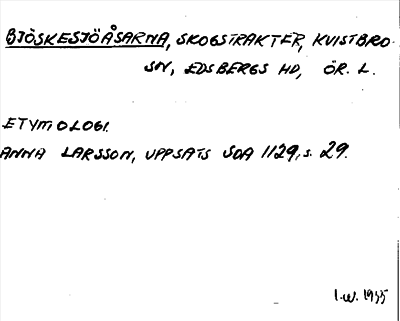 BJÖSKESJÖÅSARNA, SKOGSTRAKTER, KVISTBRO-
SN, EDSBERGS HD, ÖR. L.
ETYMOLOGI.
ANNA LARSSON, UPPSATS SOA 1129, s. 29.
I.W. 1955